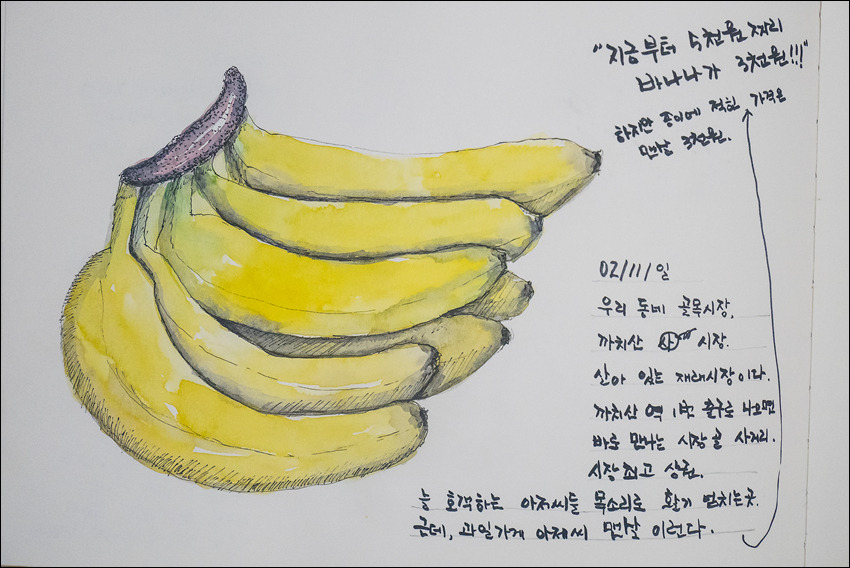 "지금부터 5천원 짜리
바나나가 3천원!!!"
하지만 종이에 적힌 가격은
맨날 3천원.
02/11/일
우리 동네 골목시장.
까치산 시장.
살아 있는 재래시장이다.
까치산 역 1번 출구로 나오면
바로 만나는 시장골 사거리.
시장 최고 상권.
늘 호객하는 아저씨들 목소리로 활기 넘치는곳.
근데, 과일가게 아저씨 맨날 이런다.